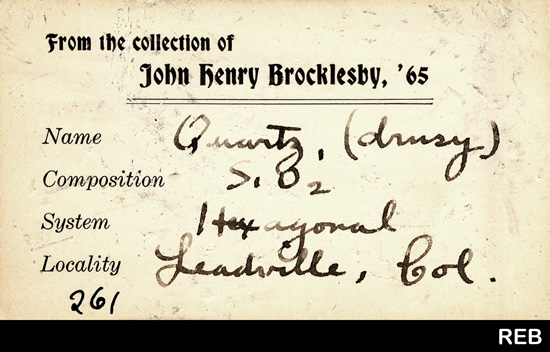 From the collection of
John Henry Brocklesby, '65
Name Quartz, (drusy)
Composition Si O2
System Hexagonal
Locality Leadville, Col.
261
REB